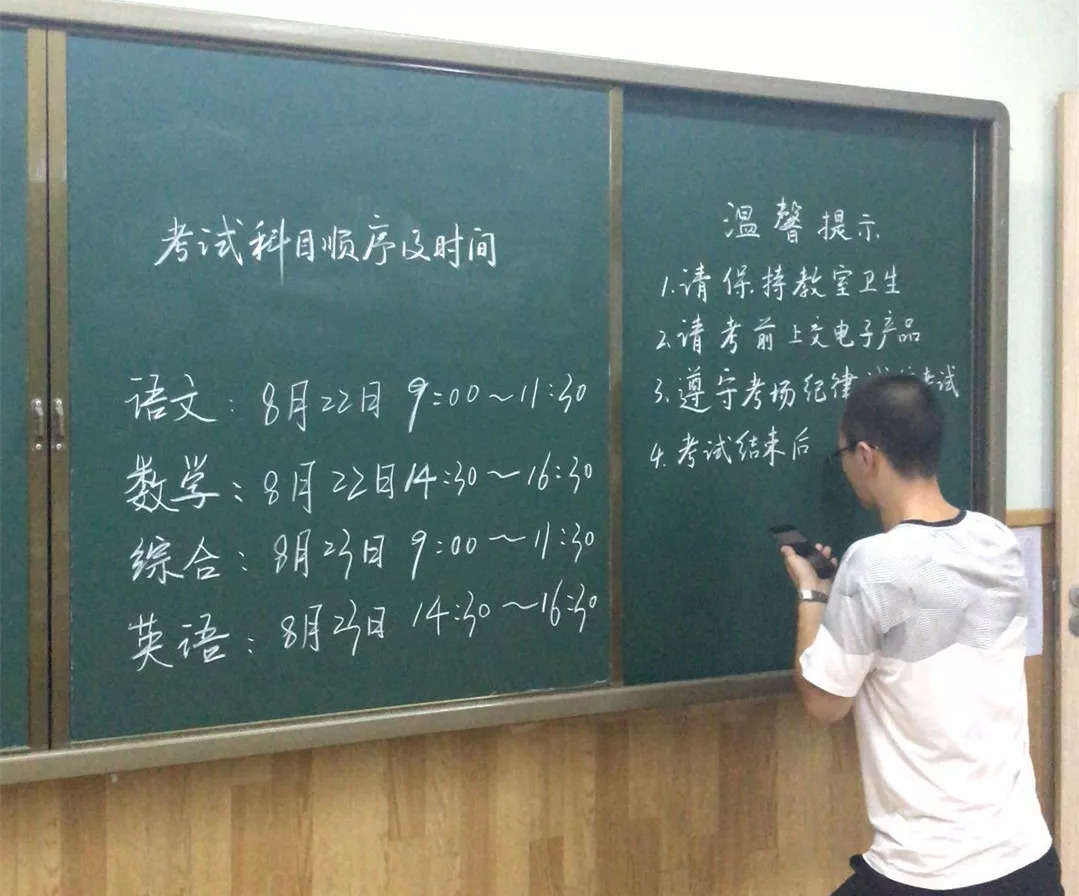 考试科目顺序及时间
语文：8月22日 9:00～11:30
数学：8月22日14:30～16:30
综合：8月23日 9:00～11:30
英语：8月23日 14:30～16:30
温馨提示
1.请保持教室卫生
2.请考前上交电子产品
3.遵守考场纪律 考试
4.考试结束后